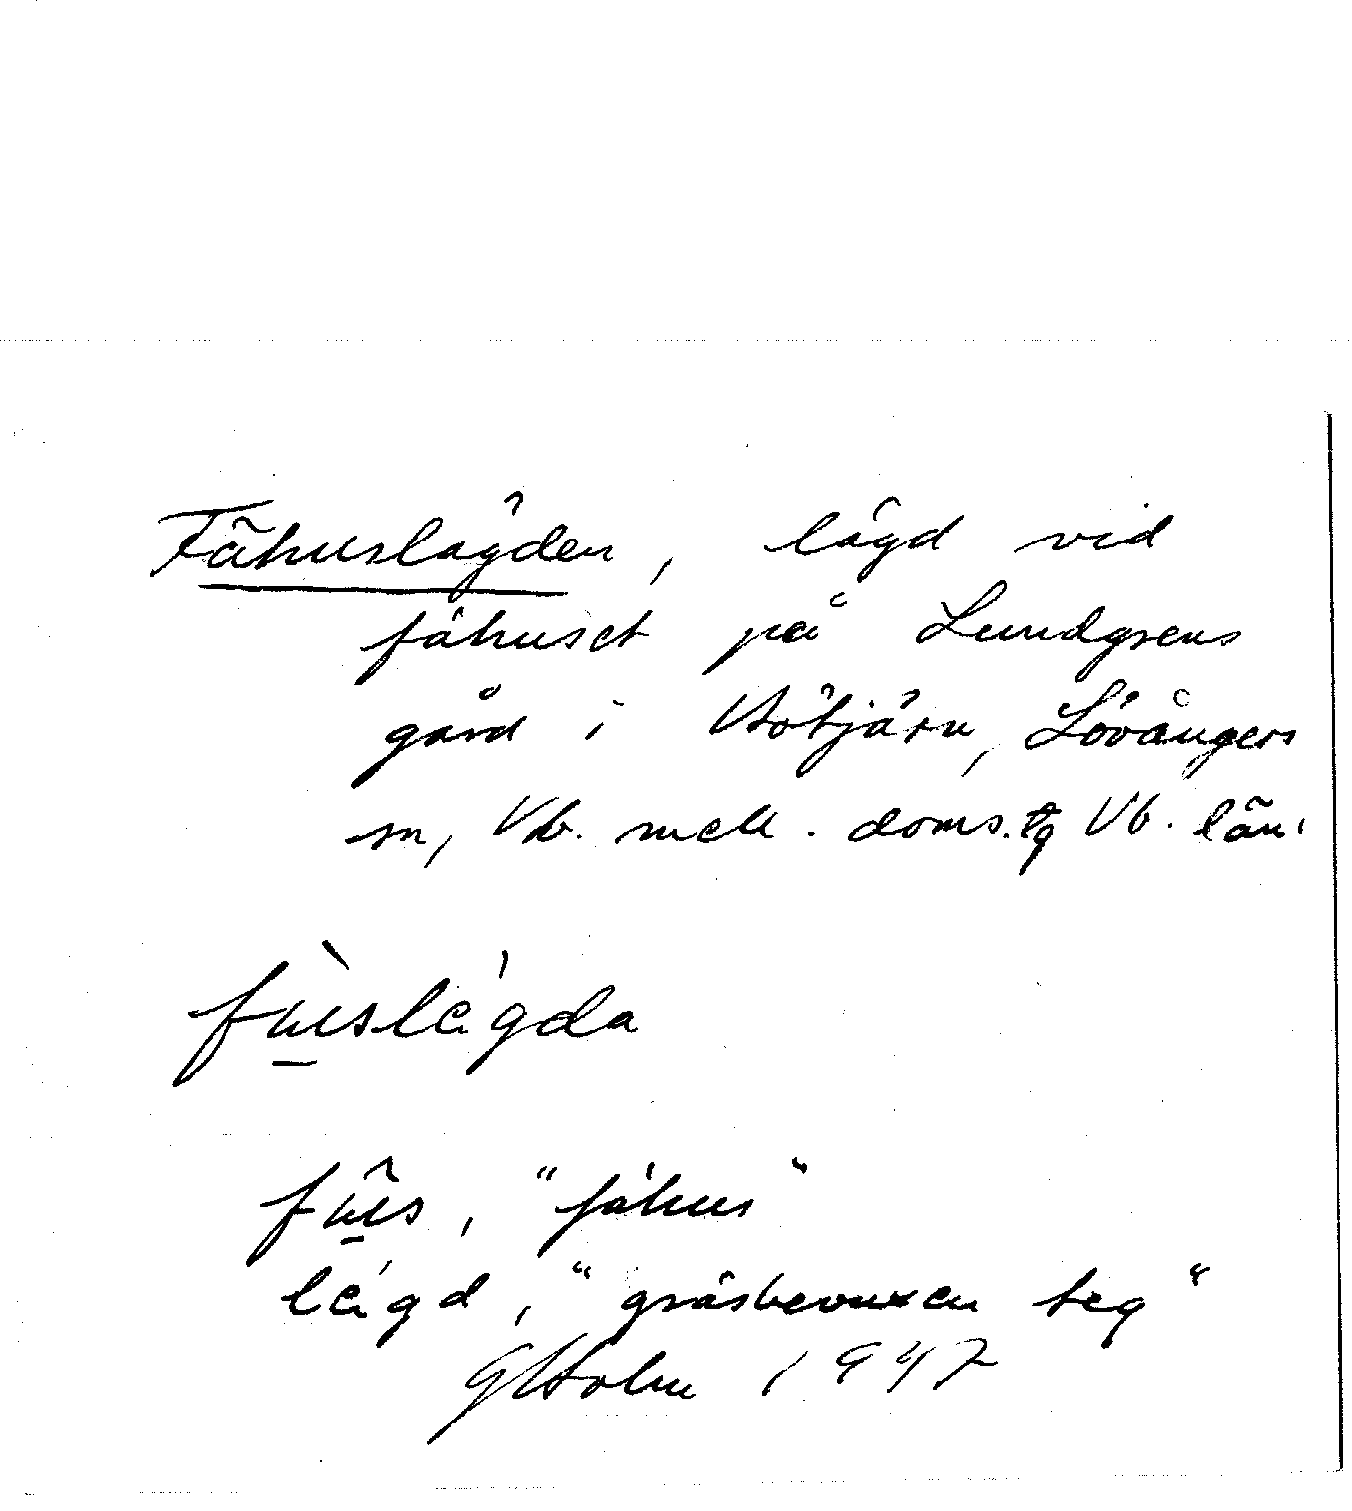 Fähuslägden, lägd vid
fähuset på Lundgrens
gård i Vbötjärn, Lövångers
sn, Vb. mell. doms.tg Vb. län.
fùslégda
fûs, "fähus"
légd, "gräsbevuxen teg"
GHolm 1947